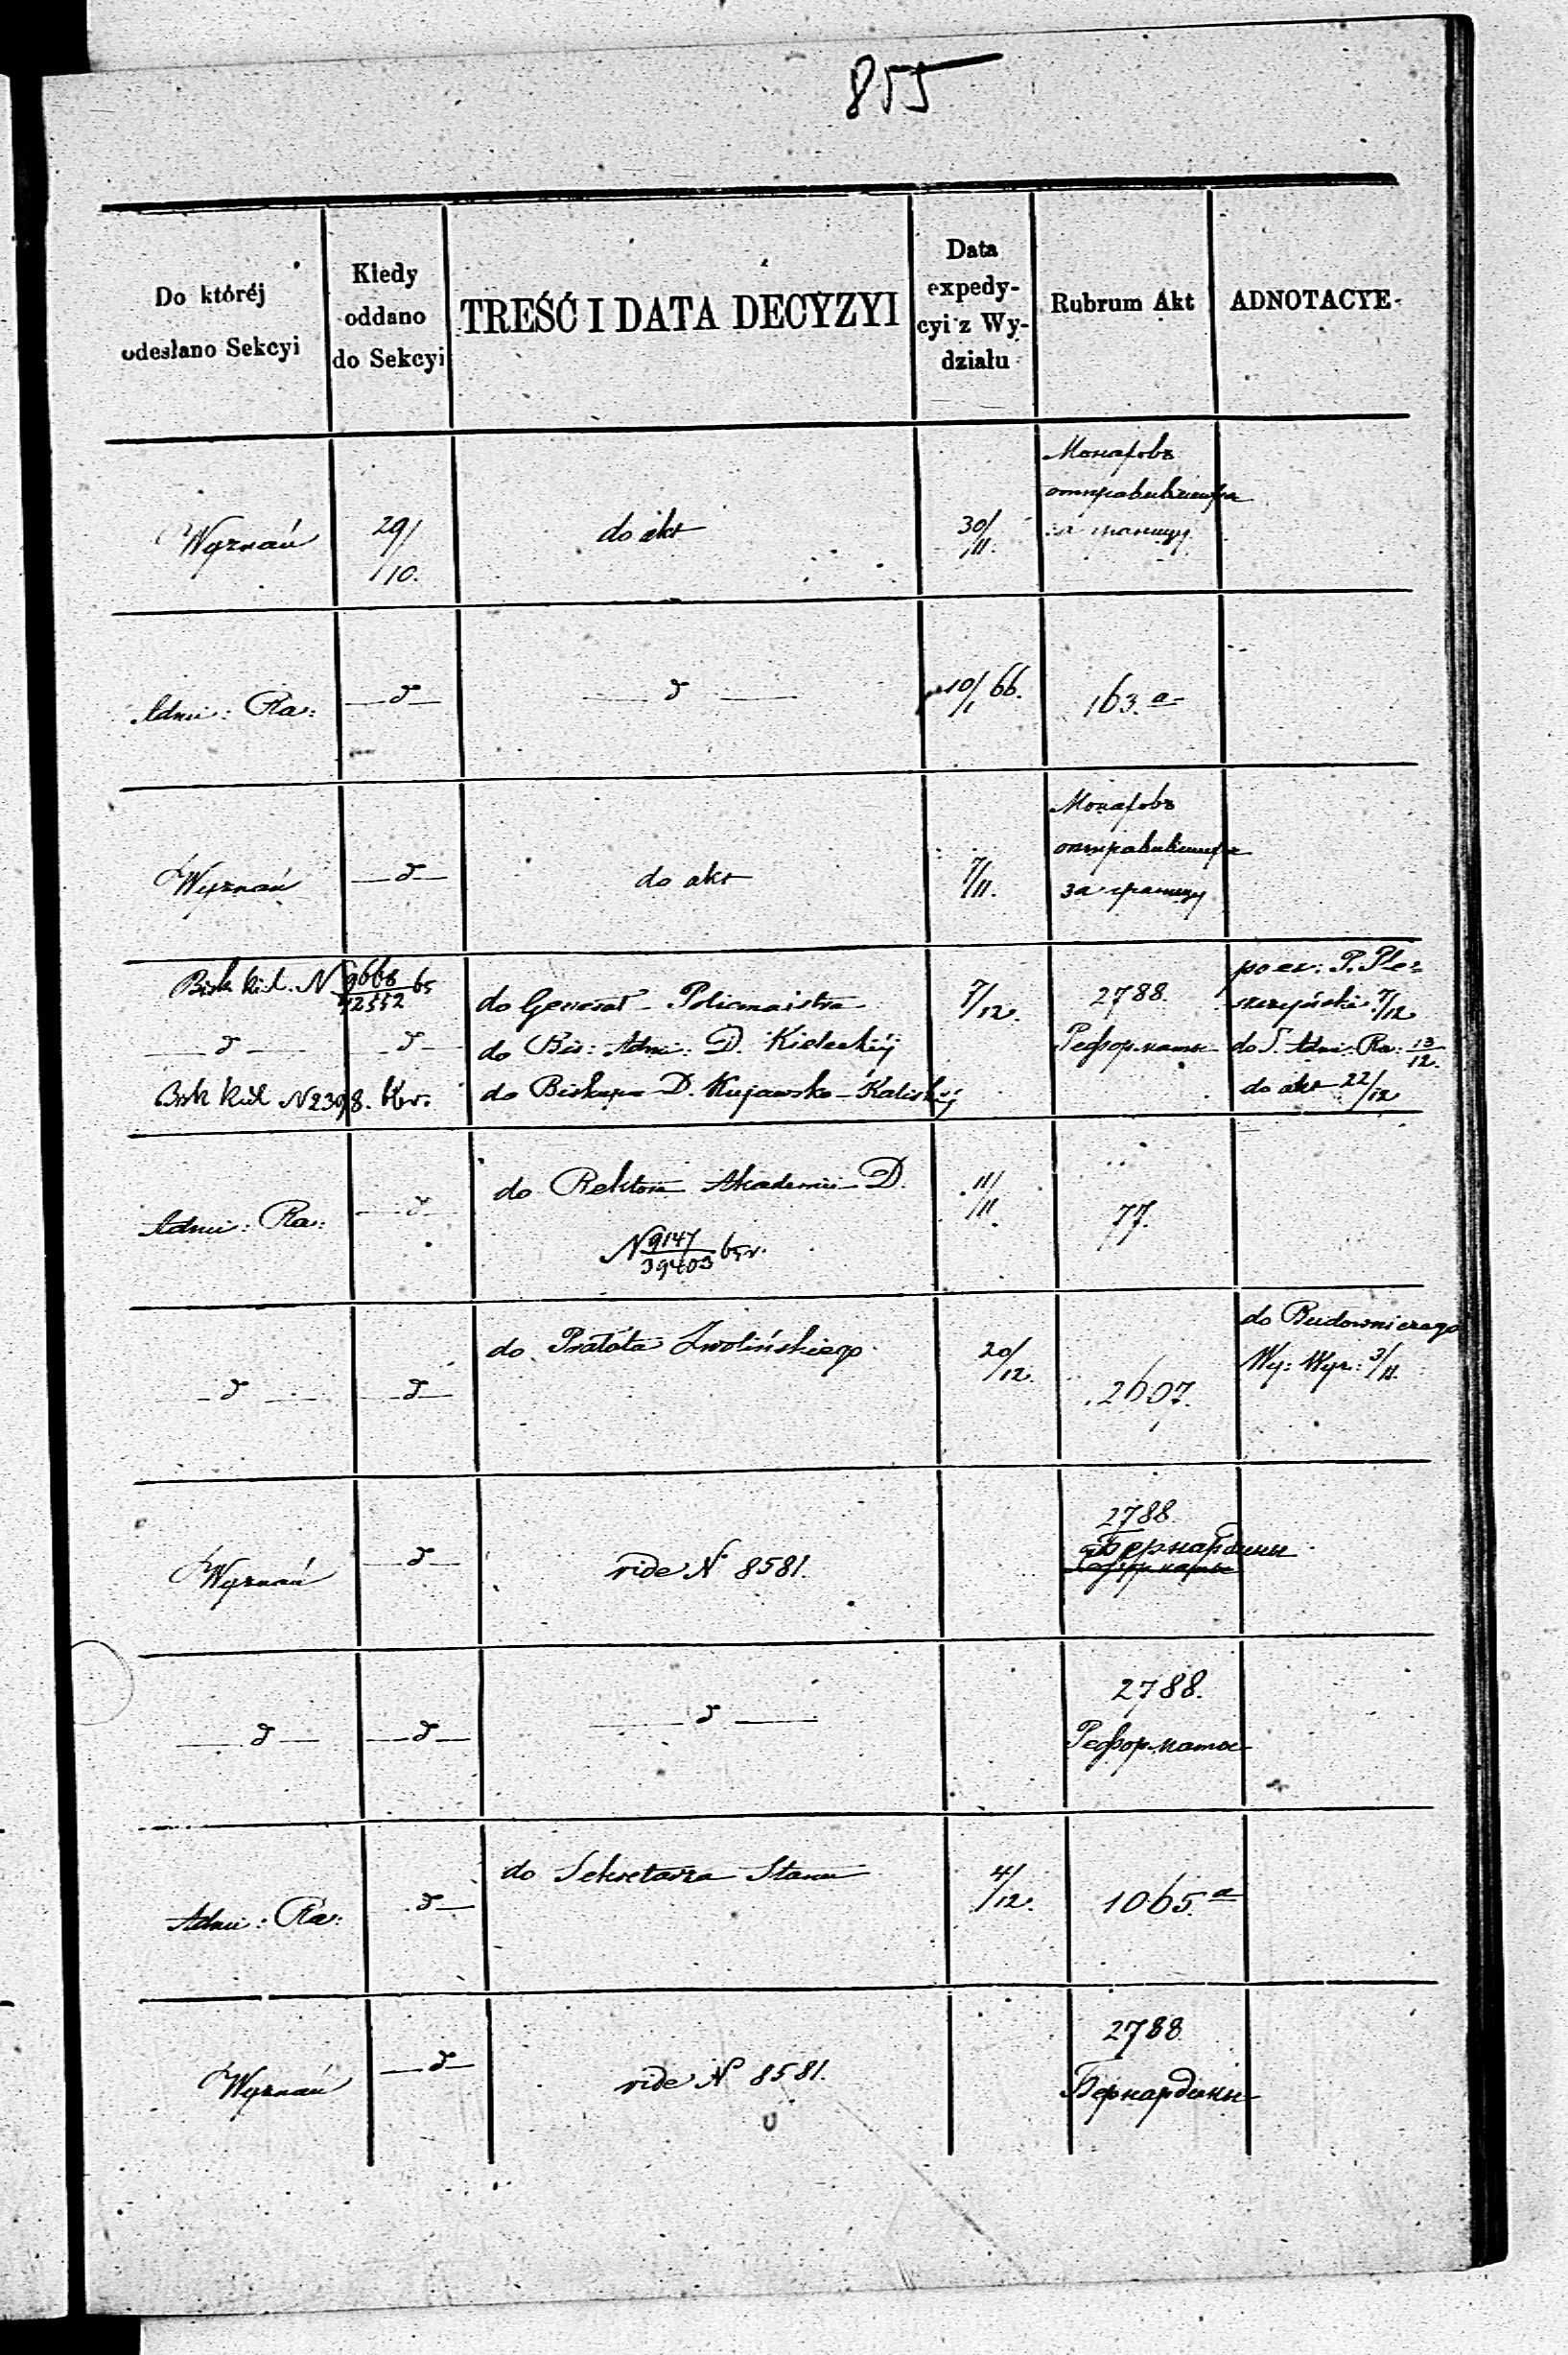 855
Do któréj
odesłano Sekcyi
Kiedy
oddano
do Sekcyi
TREŚĆ I DATA DECYZYI
Data
expedy-
cyi z Wy-
działu
Rubrum Akt
ADNOTACYE
Wyznań
29/10.
do akt
30/11.
Монаховъ
отправившихся
за границу
Admi: Ra:
— d —
— d —
10/1 66.
163.a
Wyznań
— d —
do akt
7/11.
Монаховъ
отправившихся
за границу
Bisk kiel. N 9668/12552 65
do Generał Policmaistra
7/12.
2788.
— d — — d —
do Bis: Admi: D. Kieleckiej
Реформаты
Bisk kiel N 2398.
do Biskupa D. Kujawsko-Kaliskiej
po ex: P. Ple-
szczyński 7/12
do S. Admi: Ra: 13/12.
do akt 22/12
Admi: Ra:
— d —
do Rektora Akademii D.
N 9147/39403 65 r.
11/11.
77.
— d —
— d —
do Prałata Zwolińskiego
20/12.
2607.
do Budowniczego
Wy: Wyz: 3/11.
Wyznań
— d —
vide N 8581.
2788.
Бернардины
Реформаты
— d —
— d —
— d —
2788.
Реформаты
Admi: Ra:
— d —
do Sekretarza Stanu
4/12.
1065.a
Wyznań
— d —
vide N 8581.
2788
Бернардины